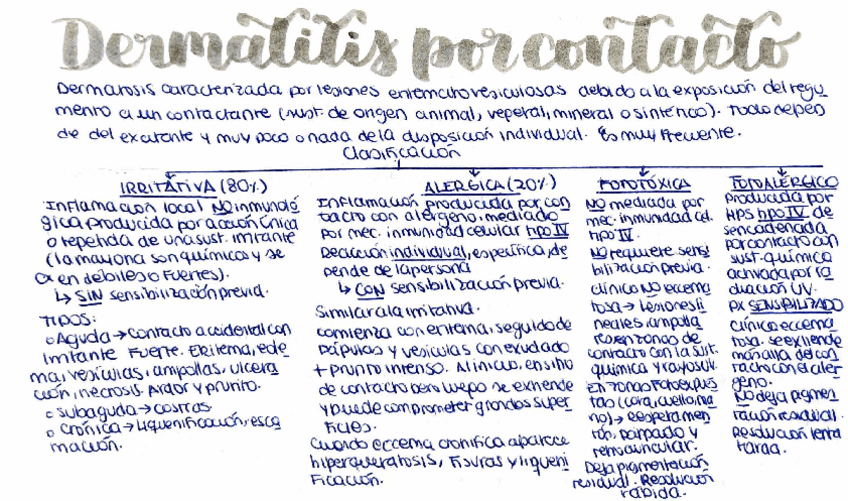 Dermatitis por contacto
Dermatosis caracterizada por lesiones eritematovesiculosas debido a la exposición del tegu
mento a un contactante (sust. de origen animal, vegetal, mineral o sintético). Todo depen
de del excitante y muy poco o nada de la disposición individual. Es muy frecuente.
Clasificación
IRRITATIVA (80%)
Inflamación local NO inmunoló
gica producida por acción única
o repetida de una sust. irritante
(la mayoria son químicos y se
en débiles o fuertes).
↳ SIN sensibilización previa.
TIPOS:
o Aguda → contacto accidental con
irritante fuerte. Eritema, ede
ma, vesículas, ampollas, ulcera
ción, necrosis. Ardor y prurito.
o subaguda → costras
o crónica → liquenificación, esca
mación.
ALERGICA (20%)
Inflamación producida por con
tacto con alergeno, mediado
por mec. inmunidad celular tipo IV
Reacción individual, específica, de
pende de la persona
↳ CON sensibilización previa.
Similar a la irritativa.
comienza con eritema, seguido de
pápulas y vesículas con exudado
+ prurito intenso. Al inicio, en sitio
de contacto pero luego se extiende
y puede comprometer grandes super
ficies.
Cuando eccema cronifica aparece
hiperqueratosis, fisuras y liqueni
ficación.
FOTOTÓXICA
NO mediada por
mec. inmunidad cel.
tipo IV.
No requiere sensi
bilización previa.
clínica NO eccema
tosa → lesiones li
neales, ampolla
res en zonas de
contacto con la sust.
química y rayos UV.
En zonas fotoexpues
tas (cara, cuello, ma
no) → respeta men
tón, párpado y
retroauricular.
Deja pigmentación
residual. Resolución
rápida.
FOTOALÉRGICO
Producida por
HPS tipo IV desencadenada
por contacto con
sust. química
activada por ra
diación UV.
PX SENSIBILIZADO
Clínica eccema
tosa. Se extiende
más allá del con
tacto con el aler
geno.
No deja pigmen
tación residual.
Resolución lenta
tarda.